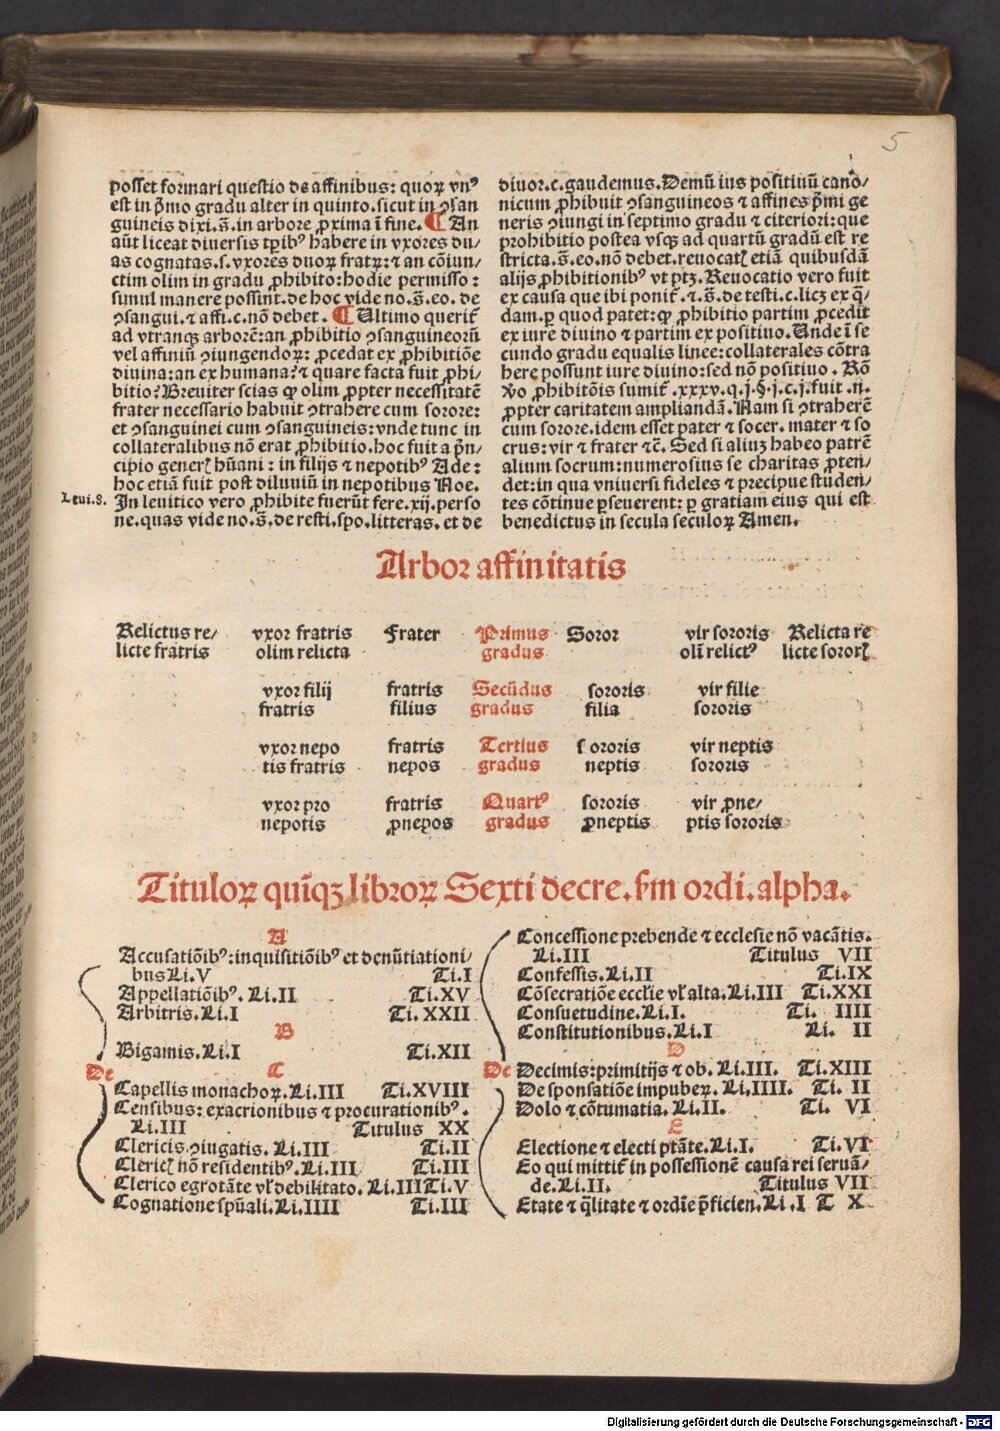 5
posset formari questio de affinibus: quoꝝ vnꝰ
est in p̄mo gradu alter in quinto. sicut in ↄ̃san
guineis dixi. s̄. in arbore ꝓxima ī fine. ¶ An
aūt liceat diuersis tꝑibꝰ habere in vxores du/
as cognatas. s. vxores duoꝝ fratꝝ: ⁊ an cōiun/
ctim olim in gradu ꝓhibito: hodie permisso:
simul manere possint. de hoc vide no. s̄. eo. de
ↄsangui. ⁊ affi. c. nō debet. ¶ Ultimo querit̄
ad vtranqꝫ arborē: an ꝓhibitio ↄsanguineorū
vel affiniū ↄiungendoꝝ: ꝓcedat ex ꝓhibitiōe
diuina: an ex humana? ⁊ quare facta fuit ꝓhi/
bitio? Breuiter scias ꝙ olim ꝓpter necessitatē
frater necessario habuit ↄtrahere cum sorore:
et ↄsanguinei cum ↄsanguineis: vnde tunc in
collateralibus nō erat ꝓhibitio. hoc fuit a p̄n/
cipio generꝭ hūani: in filijs ⁊ nepotibꝰ Ade:
hoc etiā fuit post diluuiū in nepotibus Noe.
Leui. 8.
In leuitico vero ꝓhibite fuerūt fere. xij. perso
ne. quas vide no. s̄. de resti. spo. litteras. et de
diuor. c. gaudemus. Demū ius positiuū cano/
nicum ꝓhibuit ↄsanguineos ⁊ affines p̄mi ge
neris ↄiungi in septimo gradu ⁊ citeriori: que
prohibitio postea vsqꝫ ad quartū gradū est re
stricta. s̄. eo. nō debet. reuocatꝭ etiā quibusdā
alijs ꝓhibitionibꝰ vt ptꝫ. Reuocatio vero fuit
ex causa que ibi ponit̄. ⁊. s̄. de testi. c. licꝫ ex q̄/
dam. ꝑ quod patet: ꝙ ꝓhibitio partim ꝓcedit
ex iure diuino ⁊ partim ex positiuo. Unde ī se
cundo gradu equalis linee: collaterales cōtra
here possunt iure diuino: sed nō positiuo. Rō
v̊o ꝓhibitōis sumit̄. xxxv. q. j. §. j. c. j. fuit. n.
ꝓpter caritatem ampliandā. Nam si ↄtraherē
cum sorore. idem esset pater ⁊ socer. mater ⁊ so
crus: vir ⁊ frater ⁊c̄. Sed si aliuꝫ habeo patrē
alium socrum: numerosius se charitas ꝓten/
det: in qua vniuersi fideles ⁊ precipue studen/
tes cōtinue ꝑseuerent: ꝑ gratiam eius qui est
benedictus in secula seculoꝝ Amen.
Arbor affinitatis
Relictus re/ vxor fratris Frater Primus Soror vir sororis Relicta re
licte fratris olim relicta gradus olī relictꝰ licte sororꝭ
vxor filij fratris Secūdus sororis vir filie
fratris filius gradus filia sororis
vxor nepo fratris Tertius sororis vir neptis
tis fratris nepos gradus neptis sororis
vxor pro fratris Quartꝰ sororis vir ꝓne/
nepotis ꝓnepos gradus ꝓneptis ptis sororis
Tituloꝝ quīqꝫ libroꝝ Sexti decre. s̄m ordi. alpha.
A
Accusatiōibꝰ: inquisitiōibꝰ et denūtiationi/
bus Li. V Ti. I
Appellatiōibꝰ. Li. II Ti. XV
Arbitris. Li. I Ti. XXII
B
Bigamis. Li. I Ti. XII
De C
Capellis monachoꝝ. Li. III Ti. XVIII
Censibus: exacrionibus ⁊ procurationibꝰ.
Li. III Titulus XX
Clericis ↄiugatis. Li. III Ti. II
Clericꝭ nō residentibꝰ. Li. III Ti. III
Clerico egrotāte vl̓ debilitato. Li. III Ti. V
Cognatione spūali. Li. IIII Ti. III
Concessione prebende ⁊ ecclesie nō vacātis.
Li. III Titulus VII
Confessis. Li. II Ti. IX
Cōsecratiōe eccl̄ie vl̓ alta. Li. III Ti. XXI
Consuetudine. Li. I. Ti. IIII
Constitutionibus. Li. I Li. II
D
De Decimis: primitijs ⁊ ob. Li. III. Ti. XIII
De sponsatiōe impubeꝝ. Li. IIII. Ti. II
Dolo ⁊ cōtumatia. Li. II. Ti. VI
E
Electione ⁊ electi ptāte. Li. I. Ti. VI
Eo qui mittit̄ in possessionē causa rei seruā/
de. Li. II. Titulus VII
Etate ⁊ q̄litate ⁊ ordīe p̄ficien. Li. I T X
Digitalisierung gefördert durch die Deutsche Forschungsgemeinschaft - DFG